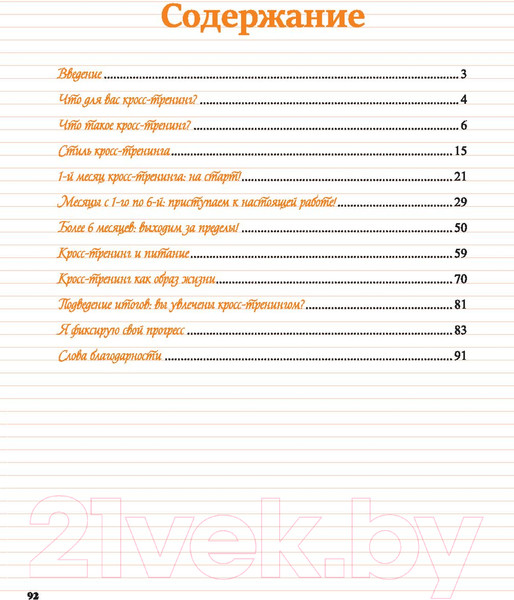 Содержание
Введение ........ 3
Что для вас кросс-тренинг? ........ 4
Что такое кросс-тренинг? ........ 6
Стиль кросс-тренинга ........ 15
1-й месяц кросс-тренинга: на старт! ........ 21
Месяцы с 1-го по 6-й: приступаем к настоящей работе! ........ 29
Более 6 месяцев: выходим за пределы! ........ 50
Кросс-тренинг и питание ........ 59
Кросс-тренинг как образ жизни ........ 70
Подведение итогов: вы увлечены кросс-тренингом? ........ 81
Я фиксирую свой прогресс ........ 83
Слова благодарности ........ 91
21vek.by
92